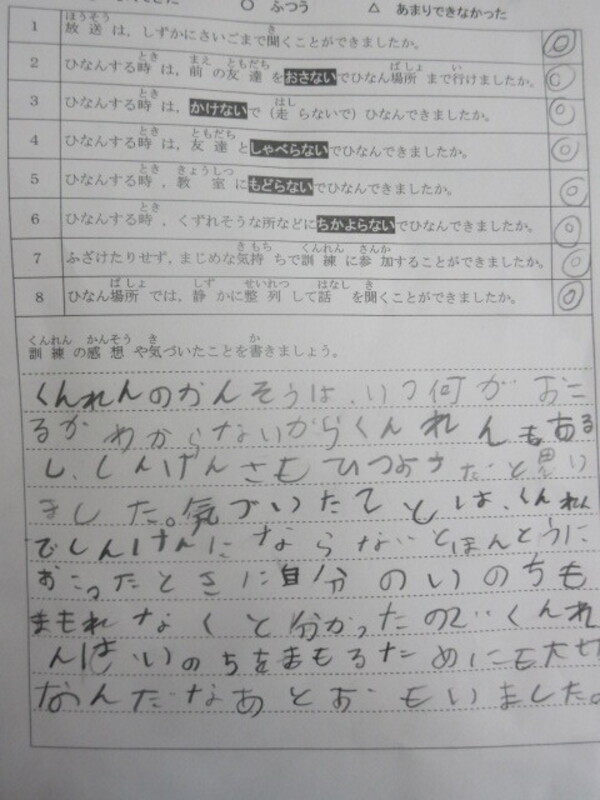 ○ ふつう △ あまりできなかった
1 放送は，しずかにさいごまで聞くことができましたか。 ◎
2 ひなんする時は，前の友達をおさないでひなん場所まで行けましたか。 ◎
3 ひなんする時は，かけないで（走らないで）ひなんできましたか。 ◎
4 ひなんする時は，友達としゃべらないでひなんできましたか。 ◎
5 ひなんする時，教室にもどらないでひなんできましたか。 ◎
6 ひなんする時，くずれそうな所などにちかよらないでひなんできましたか。 ◎
7 ふざけたりせず，まじめな気持ちで訓練に参加することができましたか。 ◎
8 ひなん場所では，静かに整列して話を聞くことができましたか。 ◎
訓練の感想や気づいたことを書きましょう。
くんれんのかんそうは、いつ何がおこ
るかわからないからくんれんもある
し、しんけんさもひつようだと思い
ました。気づいたてとは、くんれん
でしんけんにならないとほんとうに
おこったときに自分のいのちも
まもれなくと分かったので、くんれ
んはいのちをまもるためにも大切
なんだなあとおもいました。